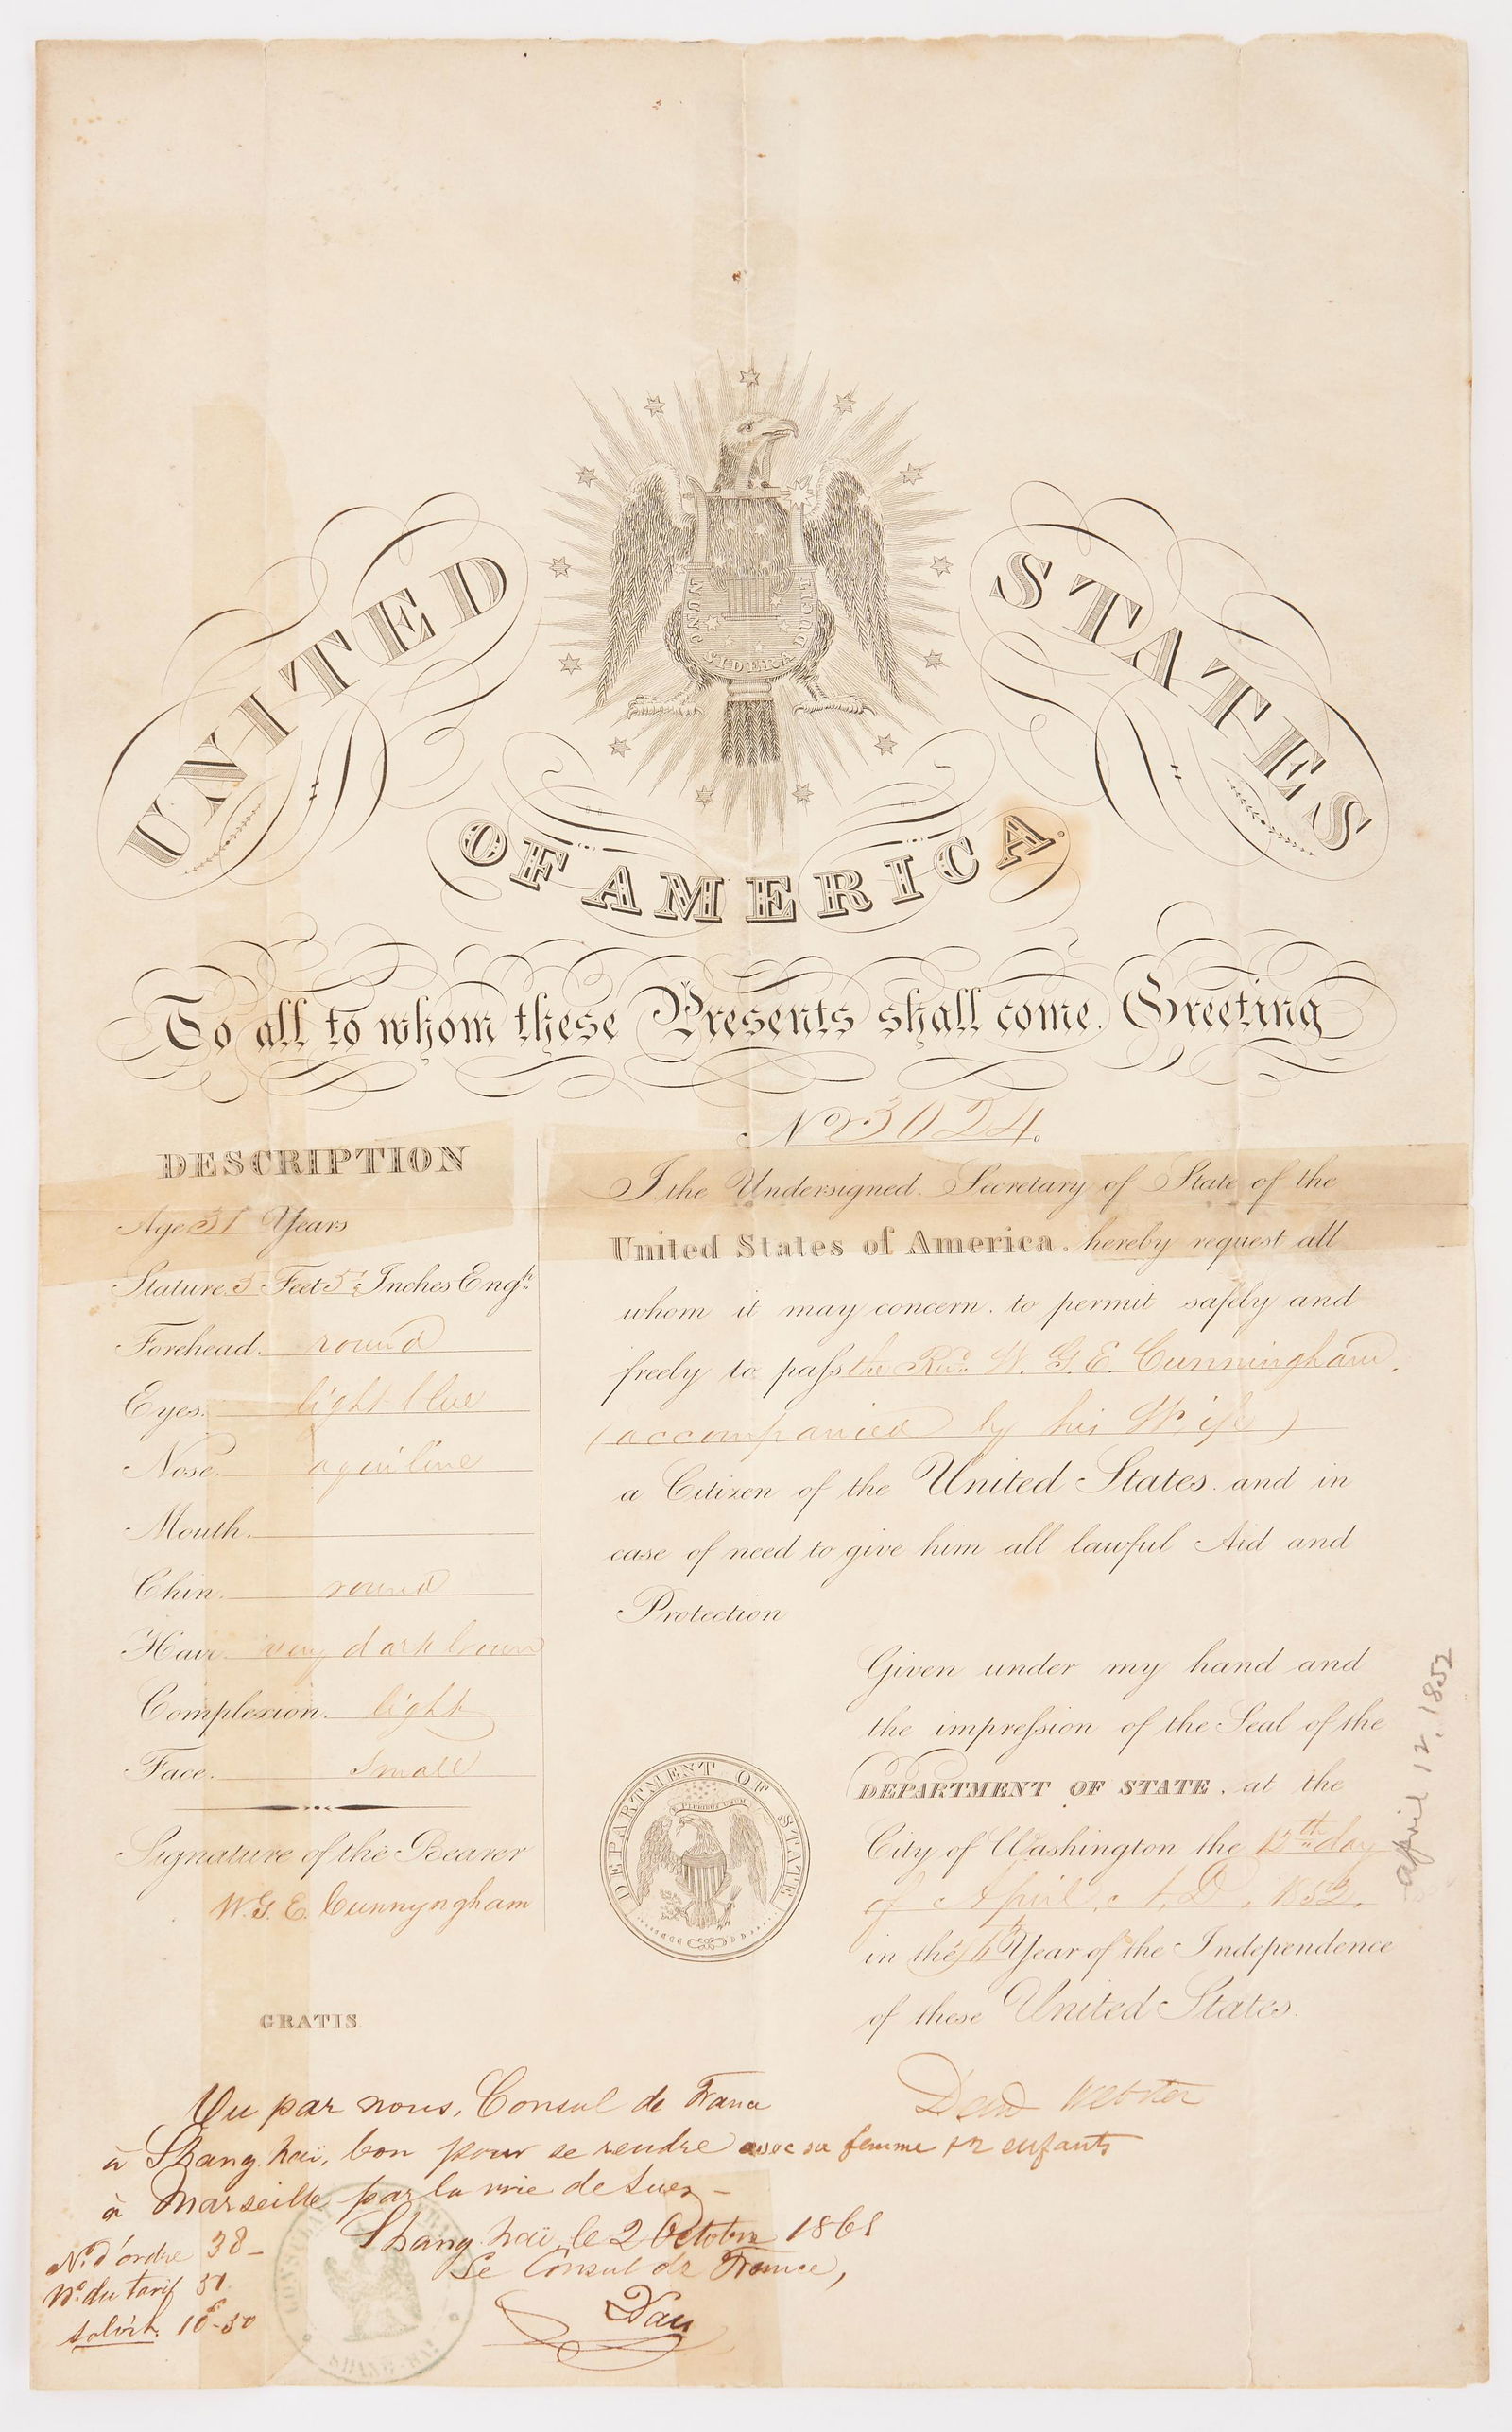 UNITED STATES
NUNC SIDERA DUCIT
OF AMERICA.
To all to whom these Presents shall come. Greeting
No 3024.
DESCRIPTION
Age 31 Years
Stature. 5 Feet 5 Inches Engh.
Forehead. round
Eyes. light blue
Nose. aquiline
Mouth.
Chin. round
Hair. very dark brown
Complexion. light
Face. small
Signature of the Bearer
W. G. E. Cunnyngham
GRATIS
I the Undersigned. Secretary of State of the
United States of America. hereby request all
whom it may concern. to permit safely and
freely to pass the Revd. W. G. E. Cunningham.
(accompanied by his Wife)
a Citizen of the United States. and in
case of need to give him all lawful Aid and
Protection
Given under my hand and
the impression of the Seal of the
DEPARTMENT OF STATE, at the
City of Washington the 12th day
of April, A. D. 1852,
in the Year of the Independence
of these United States.
DEPARTMENT OF STATE
E PLURIBUS UNUM
April 12, 1852
Danl Webster
Vu par nous, Consul de France
à Shang haï, bon pour se rendre avec sa femme & 2 enfants
à Marseille par la voie de Suez -
Shang haï, le 2 Octobre 1861
Le Consul de France,
No. d'ordre 38 -
No. du tarif 51.